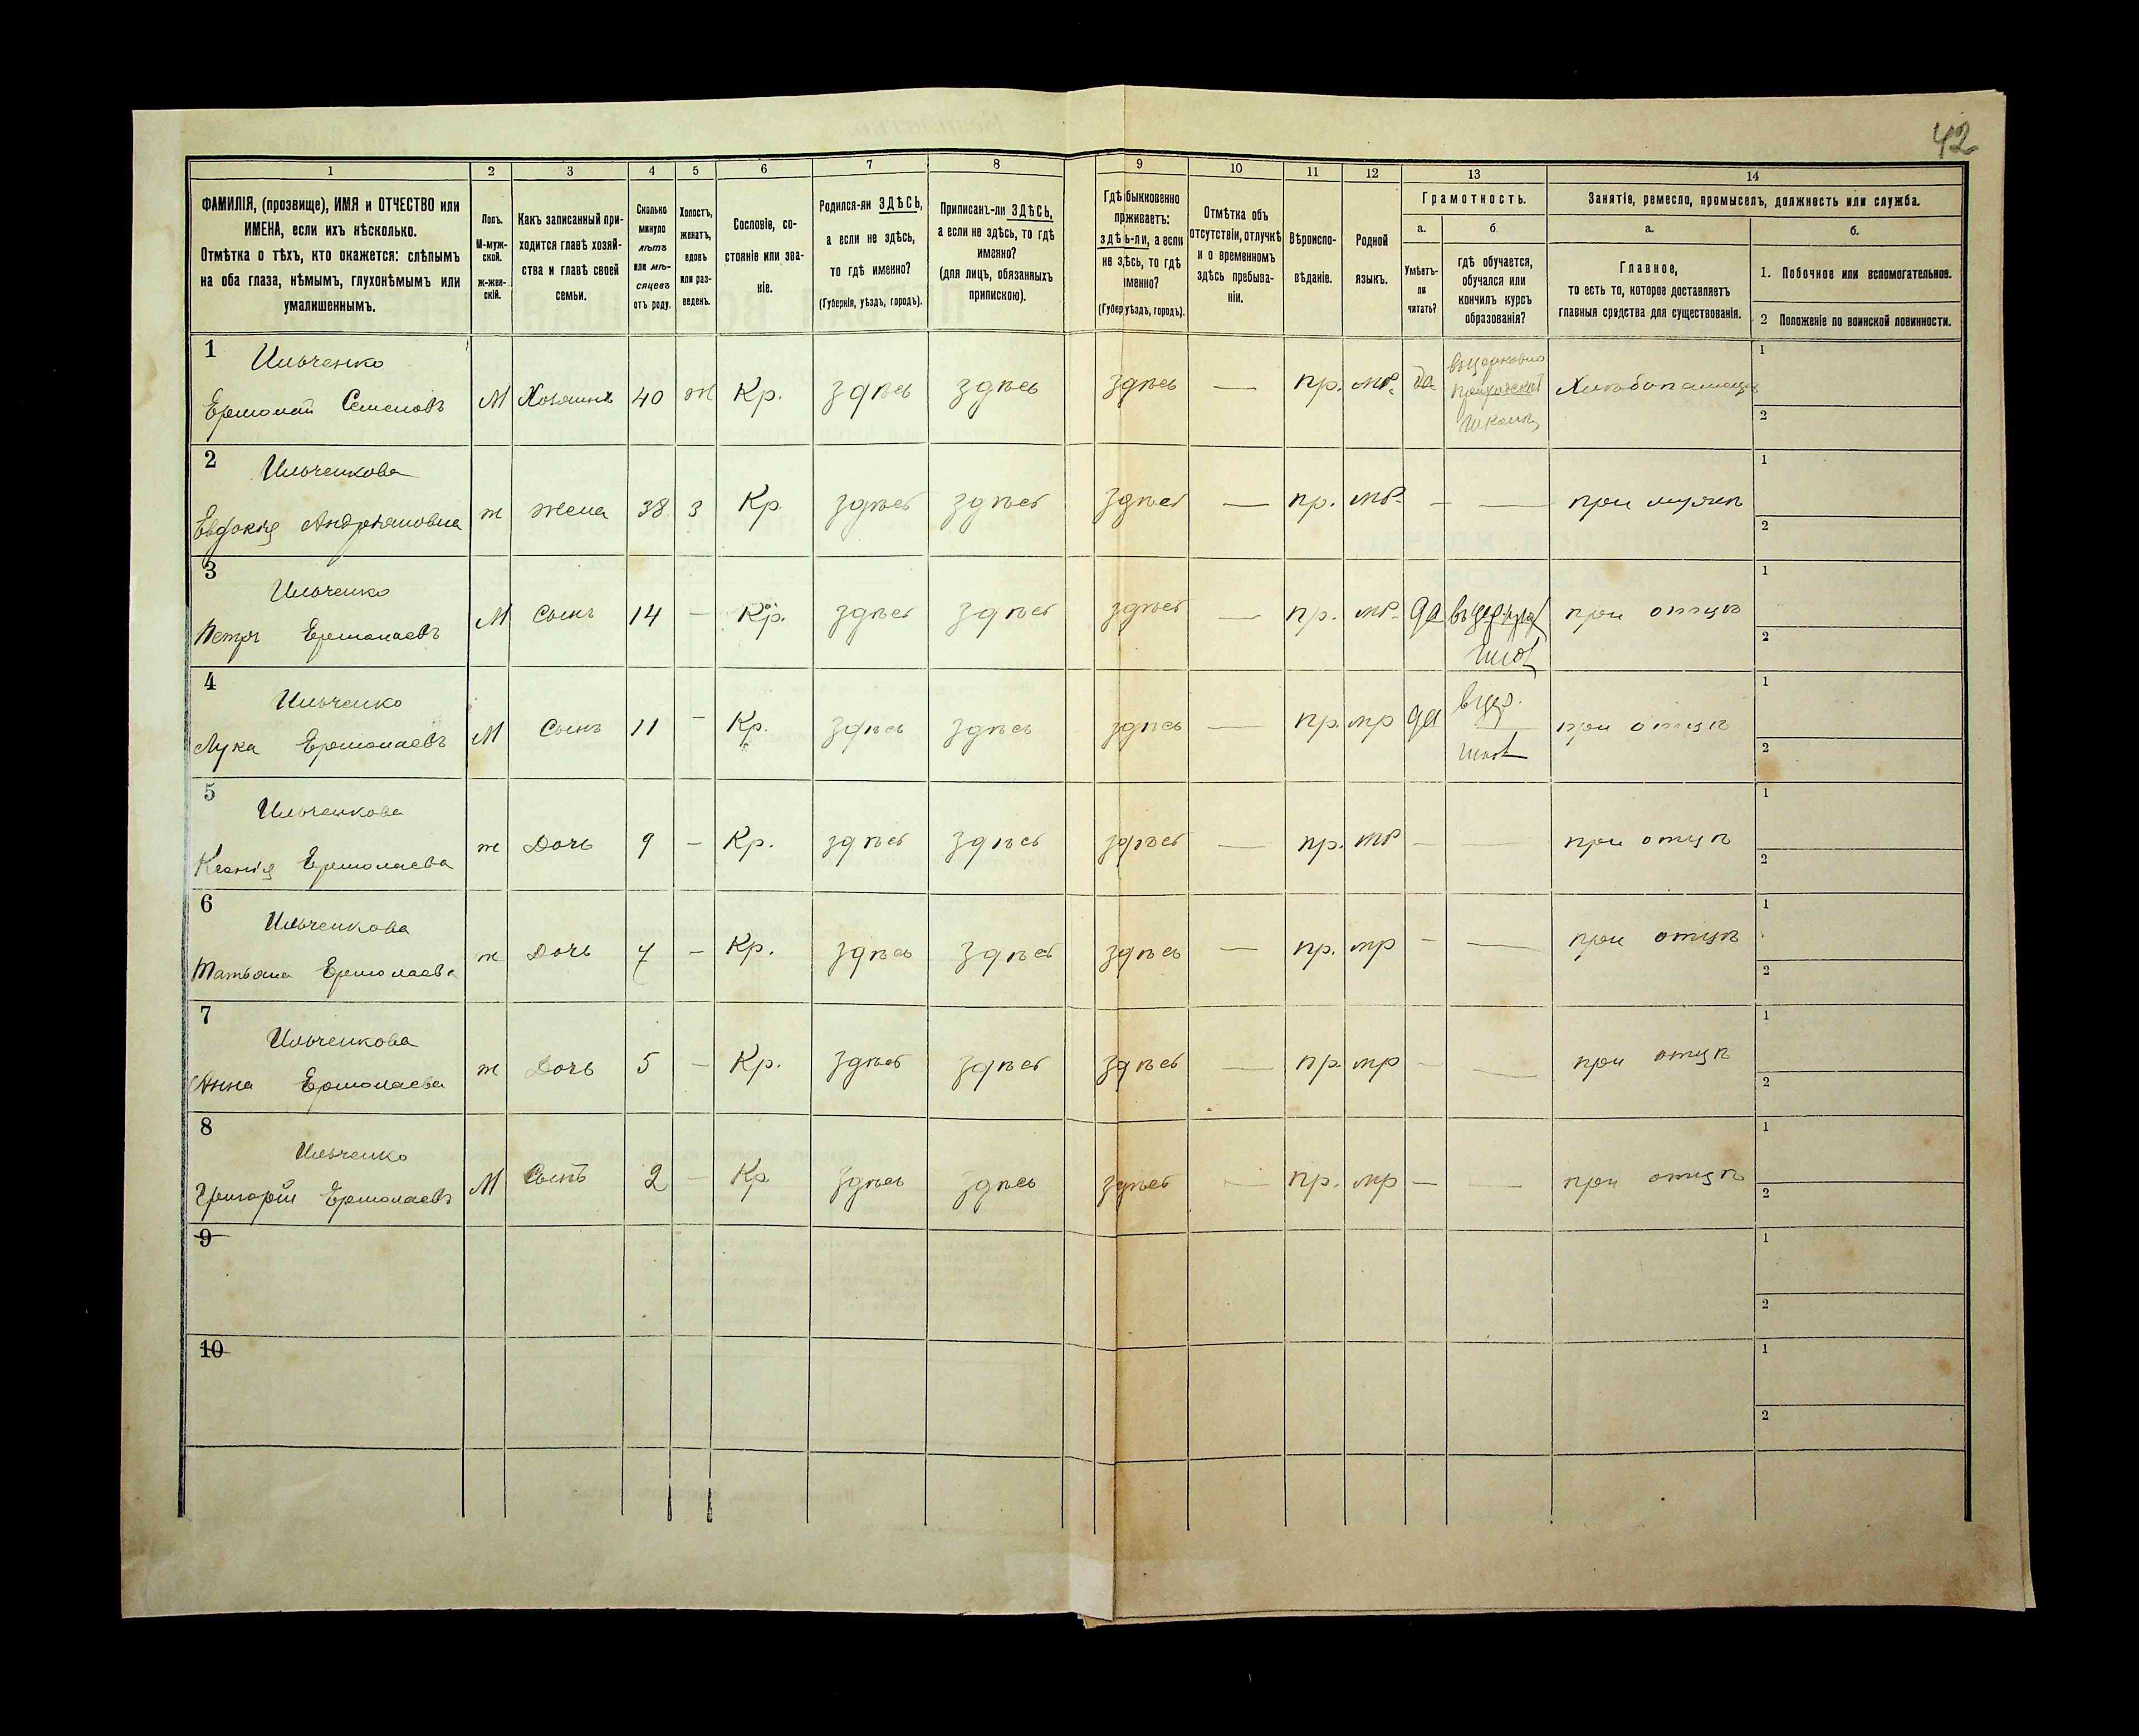 42
1 2 3 4 5 6 7 8 9 10 11 12 13 14
ФАМИЛІЯ, (прозвище), ИМЯ и ОТЧЕСТВО или
ИМЕНА, если ихъ нѣсколько.
Отмѣтка о тѣхъ, кто окажется: слѣпымъ
на оба глаза, нѣмымъ, глухонѣмымъ или
умалишеннымъ.
Полъ.
М-муж-
ской.
ж-жен-
скій.
Какъ записанный при-
ходится главѣ хозяй-
ства и главѣ своей
семьи.
Сколько
минуло
лѣтъ
или мѣ-
сяцевъ
отъ роду.
Холостъ,
женатъ,
вдовъ
или раз-
веденъ.
Сословіе, со-
стояніе или зва-
ніе.
Родился-ли ЗДѢСЬ,
а если не здѣсь,
то гдѣ именно?
(Губернія, уѣздъ, городъ).
Приписанъ-ли ЗДѢСЬ,
а если не здѣсь, то гдѣ
именно?
(для лицъ, обязанныхъ
припискою).
Гдѣ быкновенно
прживаетъ:
здѣь-ли, а если
не здѣсь, то гдѣ
именно?
(Губер уѣздъ, городъ).
Отмѣтка объ
отсутствіи, отлучкѣ
и о временномъ
здѣсь пребыва-
ніи.
Вѣроиспо-
вѣданіе.
Родной
языкъ.
Грамотность.
а. б.
Умѣетъ-
ли
читать?
гдѣ обучается,
обучался или
кончилъ курсъ
образованія?
Занятіе, ремесло, промыселъ, должность или служба.
а. б.
Главное,
то есть то, которое доставляетъ
главныя средства для существованія.
1. Побочное или вспомогательное.
2 Положеніе по воинской повинности.
1 Ильченко
Ермолай Семеновъ М Хозяинъ 40 ж Кр. здѣсь здѣсь здѣсь — пр. мр. да
школѣ
1
2
2 Ильченкова
Евдокія Андріяновна ж жена 38 з Кр. здѣсь здѣсь здѣсь — пр. мр. — — при мужѣ
1
2
3 Ильченко
Петръ Ермолаевъ М Сынъ 14 — Кр. здѣсь здѣсь здѣсь — пр. мр. да при отцѣ
1
2
4 Ильченко
Лука Ермолаевъ М Сынъ 11 — Кр. здѣсь здѣсь здѣсь — пр. мр да при отцѣ
1
2
5 Ильченкова
Ксенія Ермолаева ж Дочь 9 — Кр. здѣсь здѣсь здѣсь — пр. мр — — при отцѣ
1
2
6 Ильченкова
Татьяна Ермолаева ж Дочь 7 — Кр. здѣсь здѣсь здѣсь — пр. мр — — при отцѣ
1
2
7 Ильченкова
Анна Ермолаева ж Дочь 5 — Кр. здѣсь здѣсь здѣсь — пр. мр — — при отцѣ
1
2
8 Ильченко
Григорій Ермолаевъ М Сынъ 2 — Кр. здѣсь здѣсь здѣсь — пр. мр — — при отцѣ
1
2
9
1
2
10
1
2